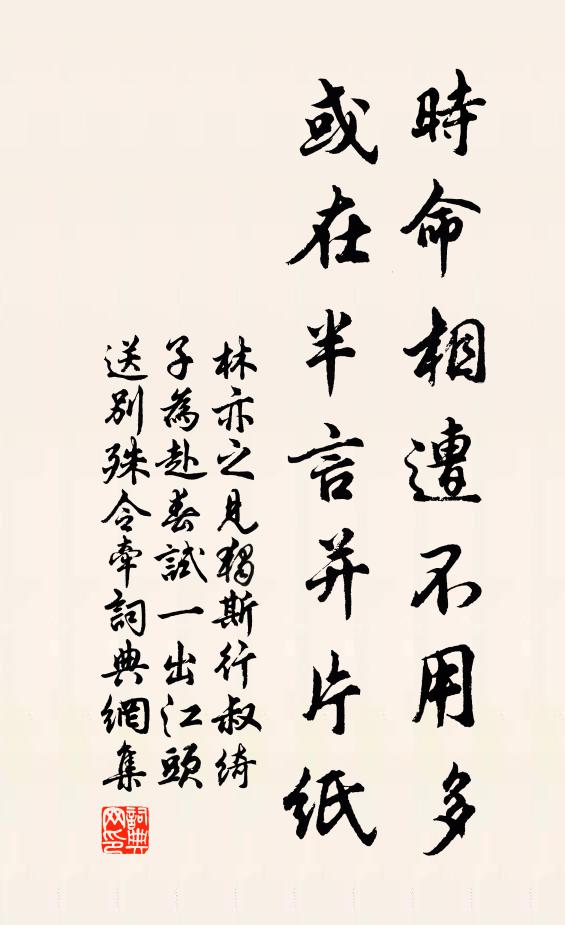 時命相遭不用多
或在半言并片紙
林亦之見獨斯行叔綺
子為赴春試一出江頭
送別殊令牽詞典網集
詞典網印